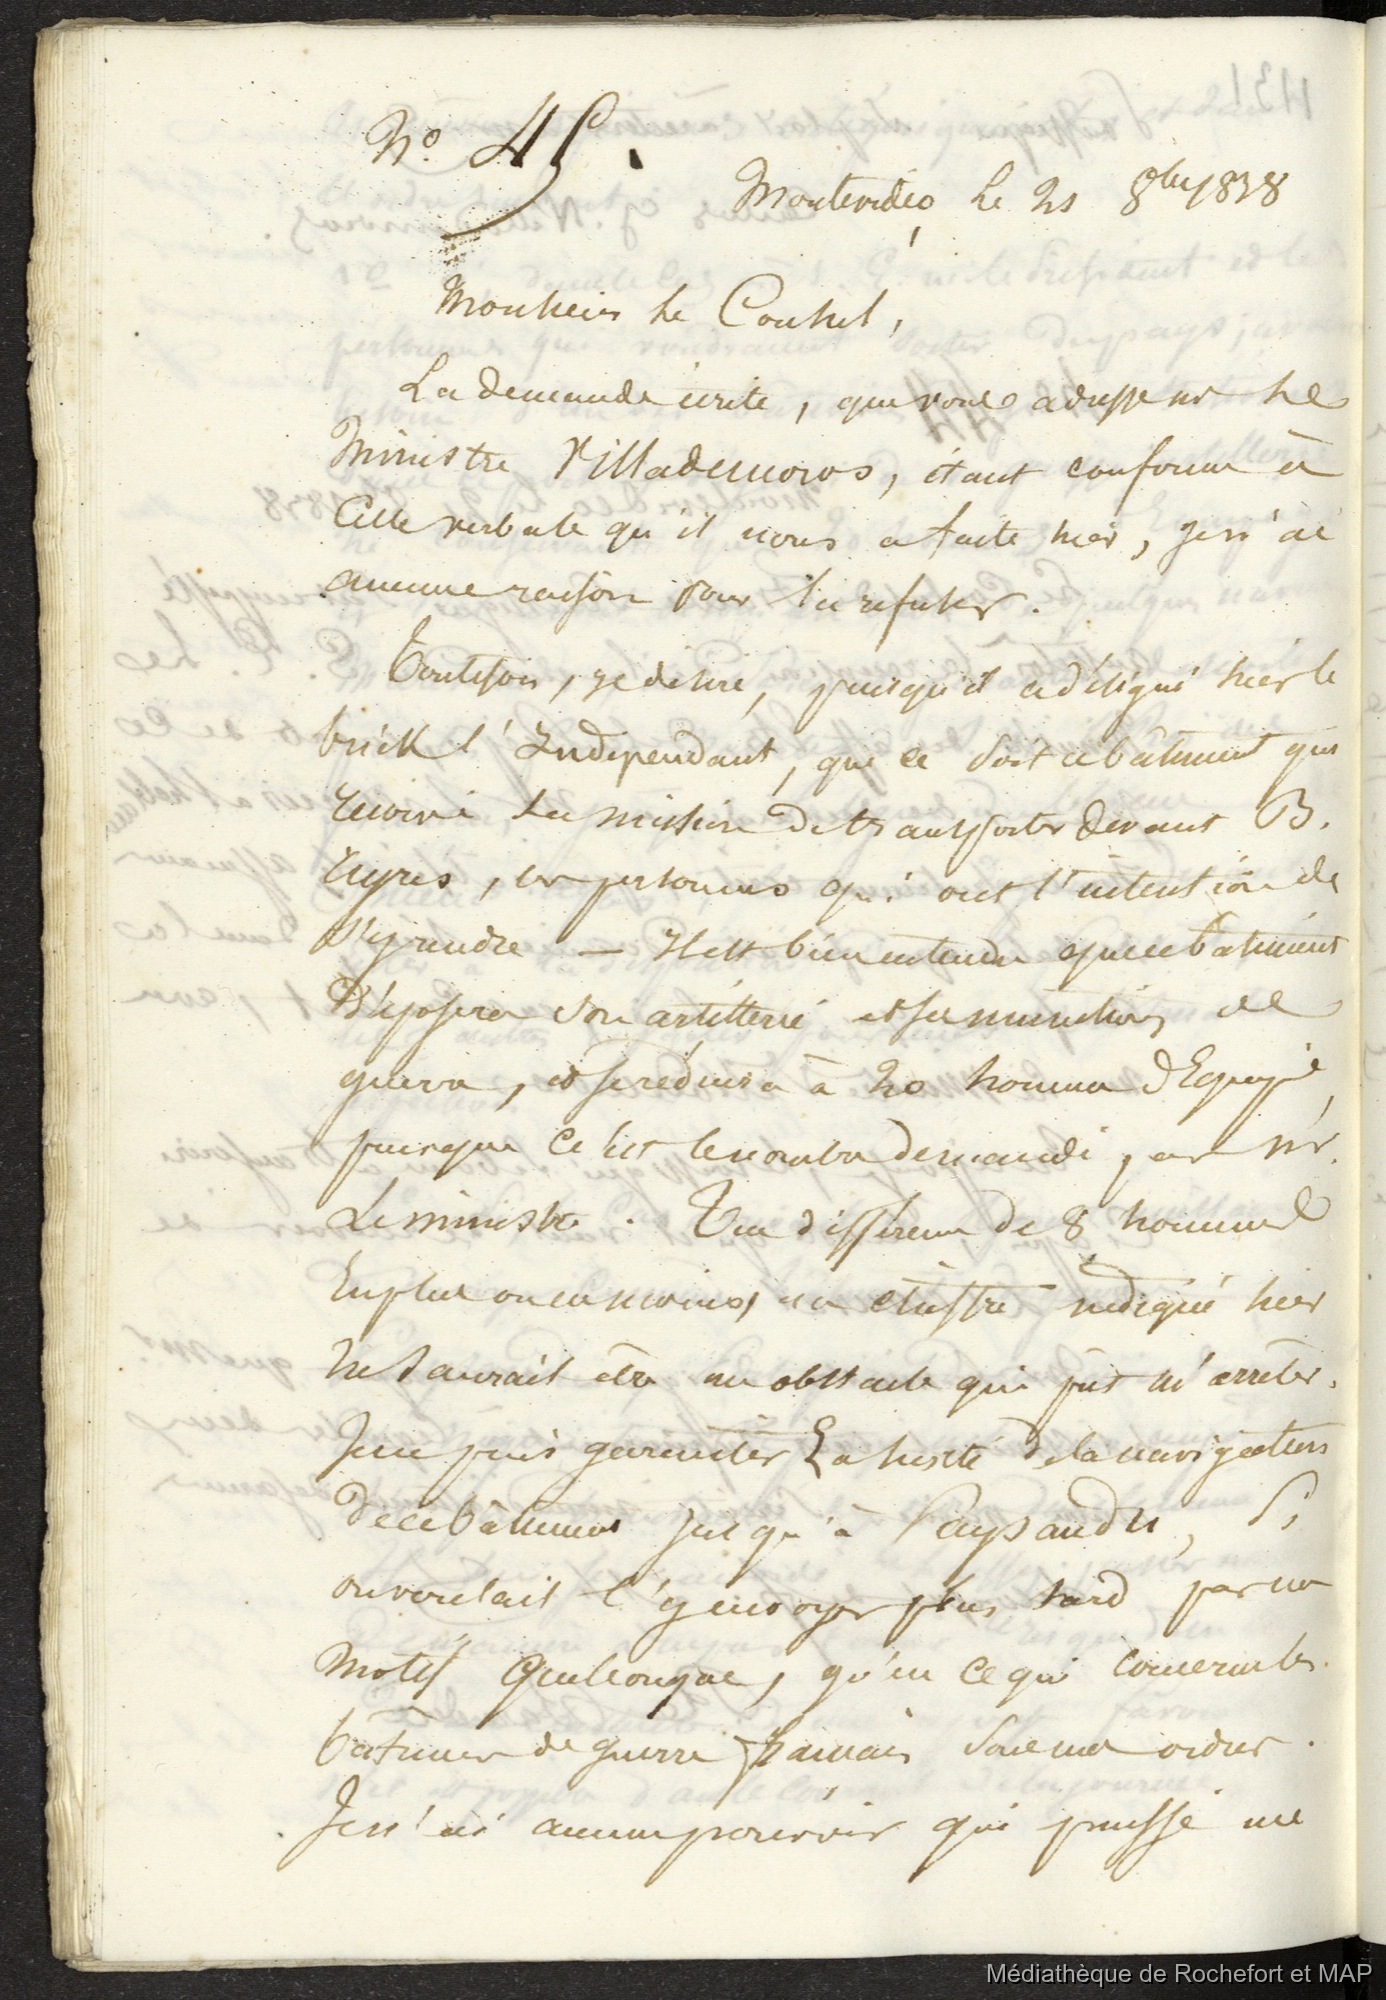 N.° 45.
Montevideo, le 21 8bre 1838
Monsieur le Consul,
La demande écrite, que vous adresse Mr le
Ministre Villademoros, étant conforme à
Celle verbale qu'il nous a faite hier, je n'ai
aucune raison pour la refuser.
Toutefois, je désire, puisqu'il a désigné hier le
brick l'Indépendant, que ce soit ce bâtiment qui
reçoive la mission de transporter devant B.
Ayres, les personnes qui ont l'intention de
s'y rendre — Il est bien entendu que ce bâtiment
déposera son artillerie et ses munitions de
guerre, et se réduira à 20 hommes d'Equipage,
puisque c'est le nombre demandé par Mr.
Le ministre. Une différence de 8 hommes
en plus ou en moins, au chiffre indiqué hier
ne saurait être un obstacle qui pût m'arrêter.
Je ne puis garantir la sureté de la navigation
de ce bâtiment jusqu'à Paysandu, Si
on voulait l'y envoyer plus tard par un
motif quelconque, qu'en ce qui concerne les
bâtimens de guerre français sous mes ordres.
Je n'ai aucun pouvoir qui puisse me
Médiathèque de Rochefort et MAP